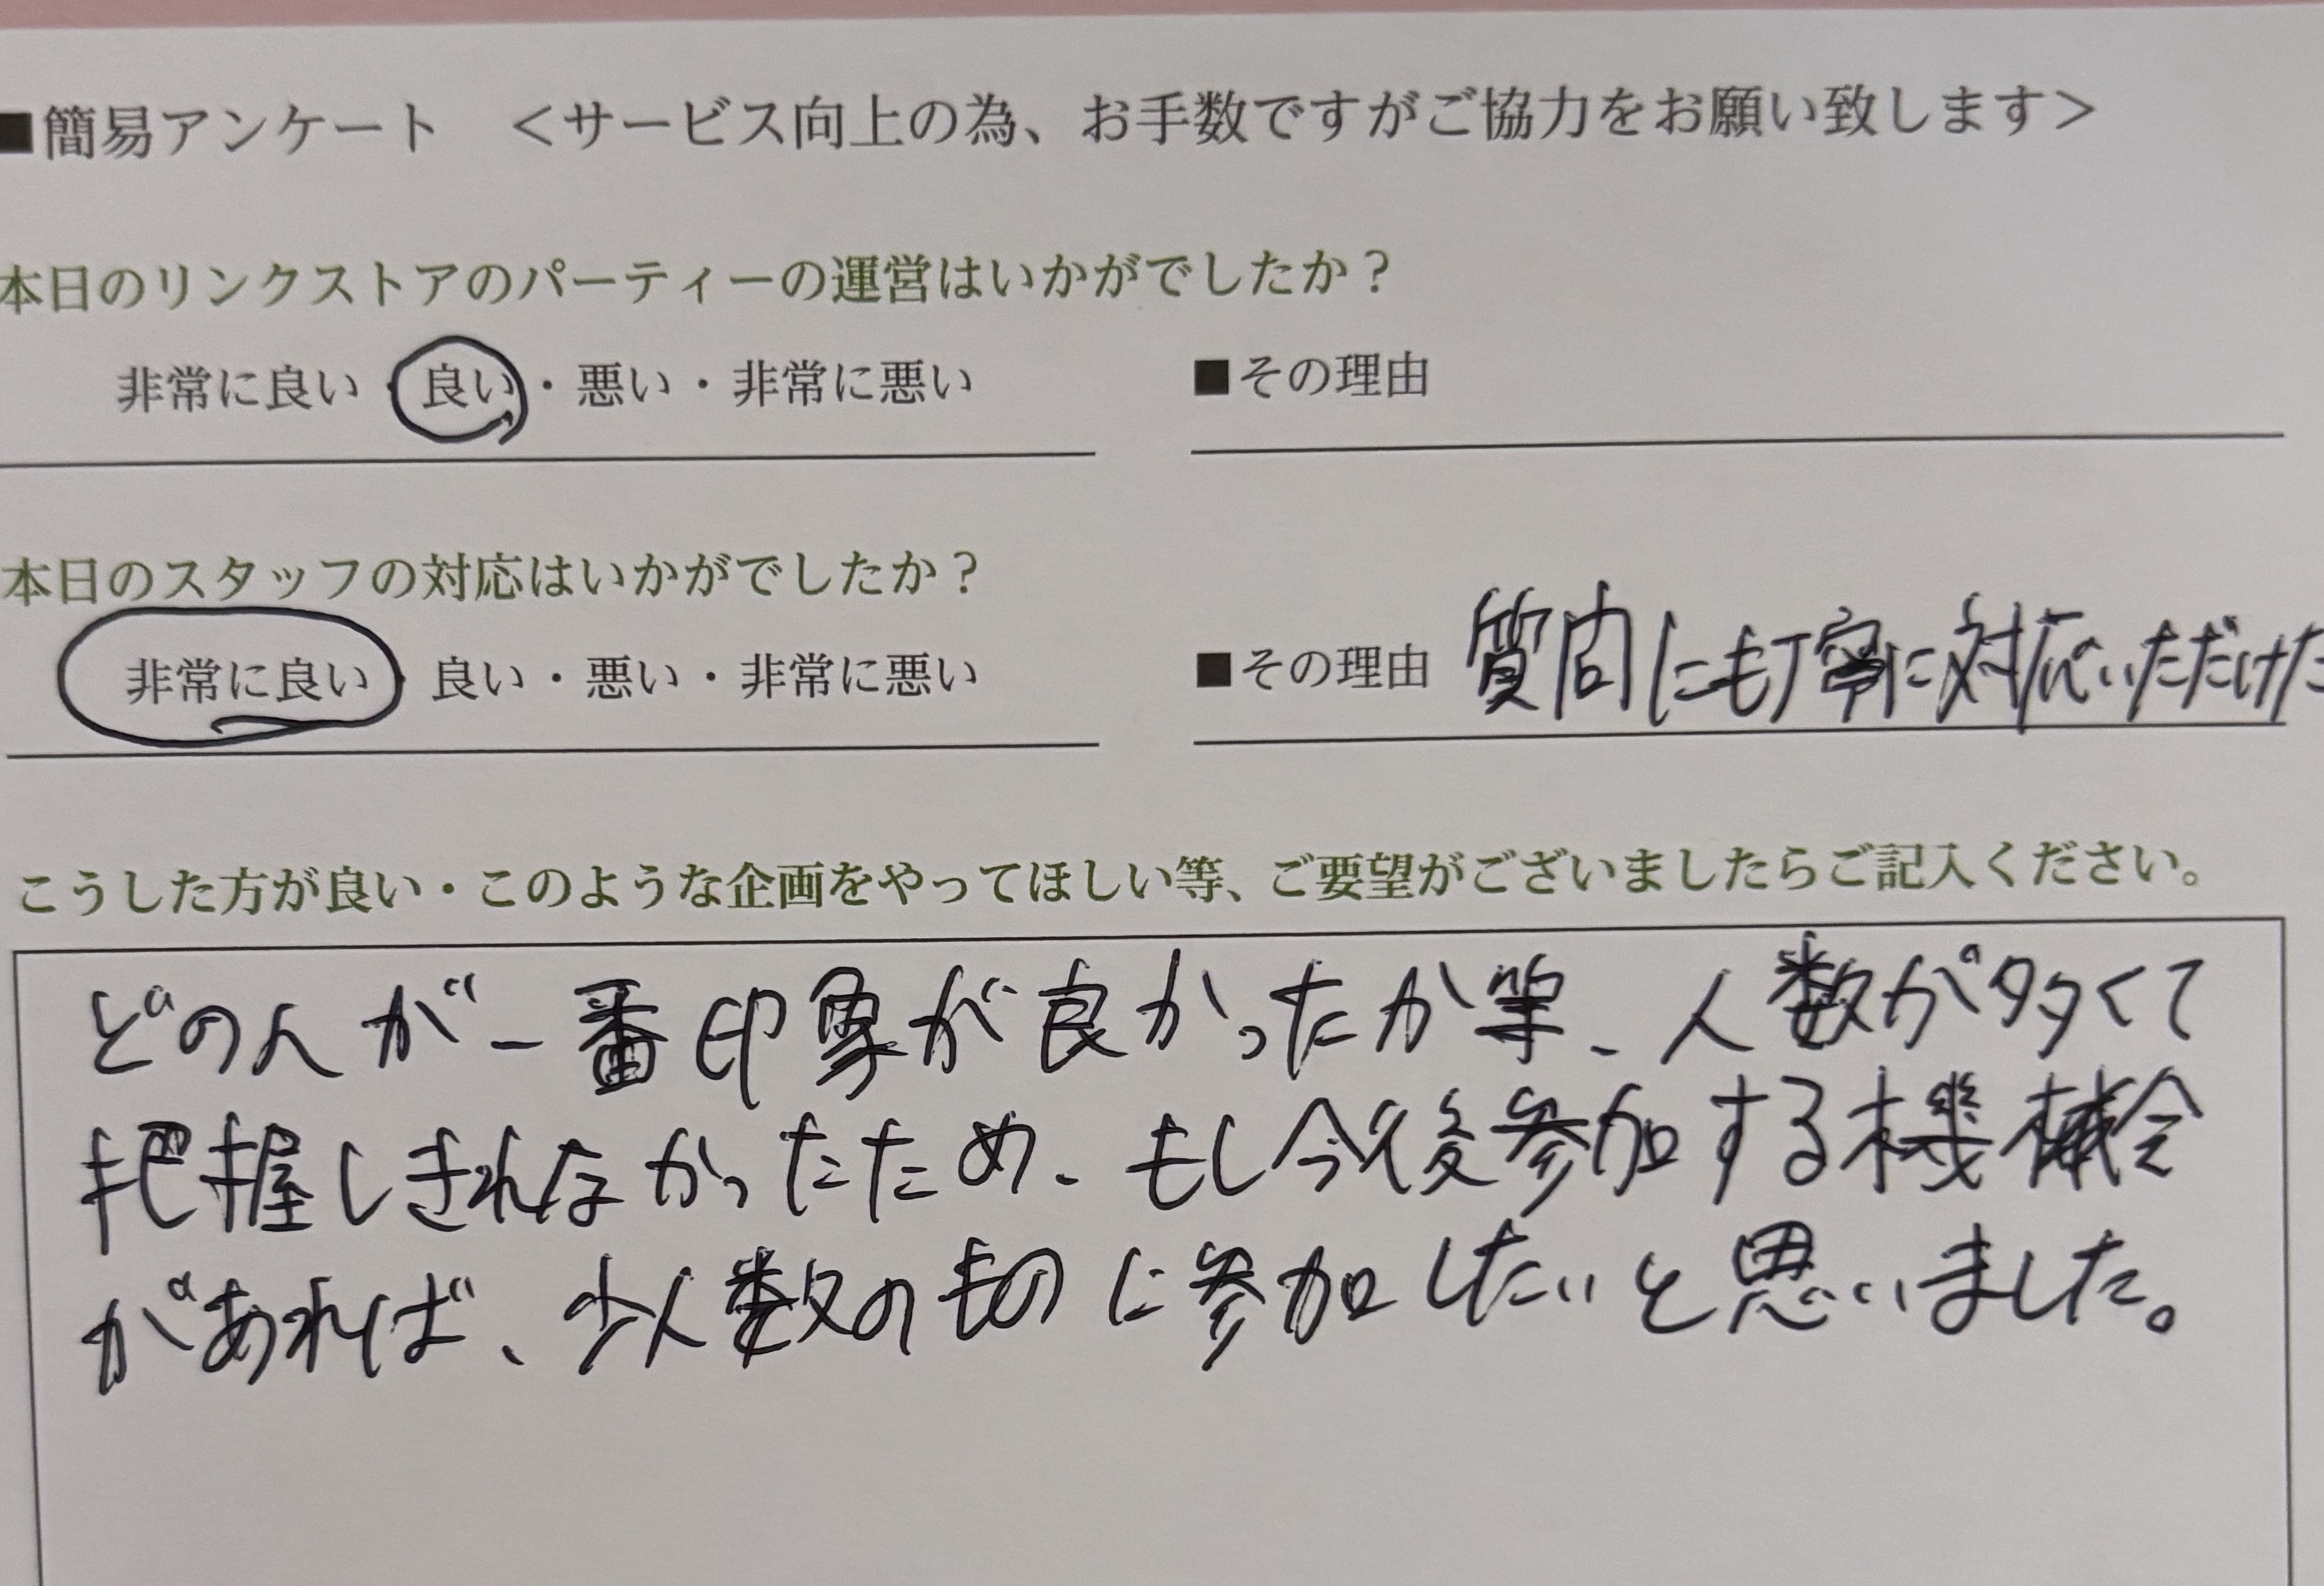 ■簡易アンケート　＜サービス向上の為、お手数ですがご協力をお願い致します＞
本日のリンクストアのパーティーの運営はいかがでしたか？
非常に良い・良い・悪い・非常に悪い　■その理由
本日のスタッフの対応はいかがでしたか？
非常に良い・良い・悪い・非常に悪い　■その理由 質問にも丁寧に対応いただけた
こうした方が良い・このような企画をやってほしい等、ご要望がございましたらご記入ください。
どの人が一番印象が良かったか等、人数が多くて
把握しきれなかったため、もし今後参加する機会
があれば、少人数のものに参加したいと思いました。